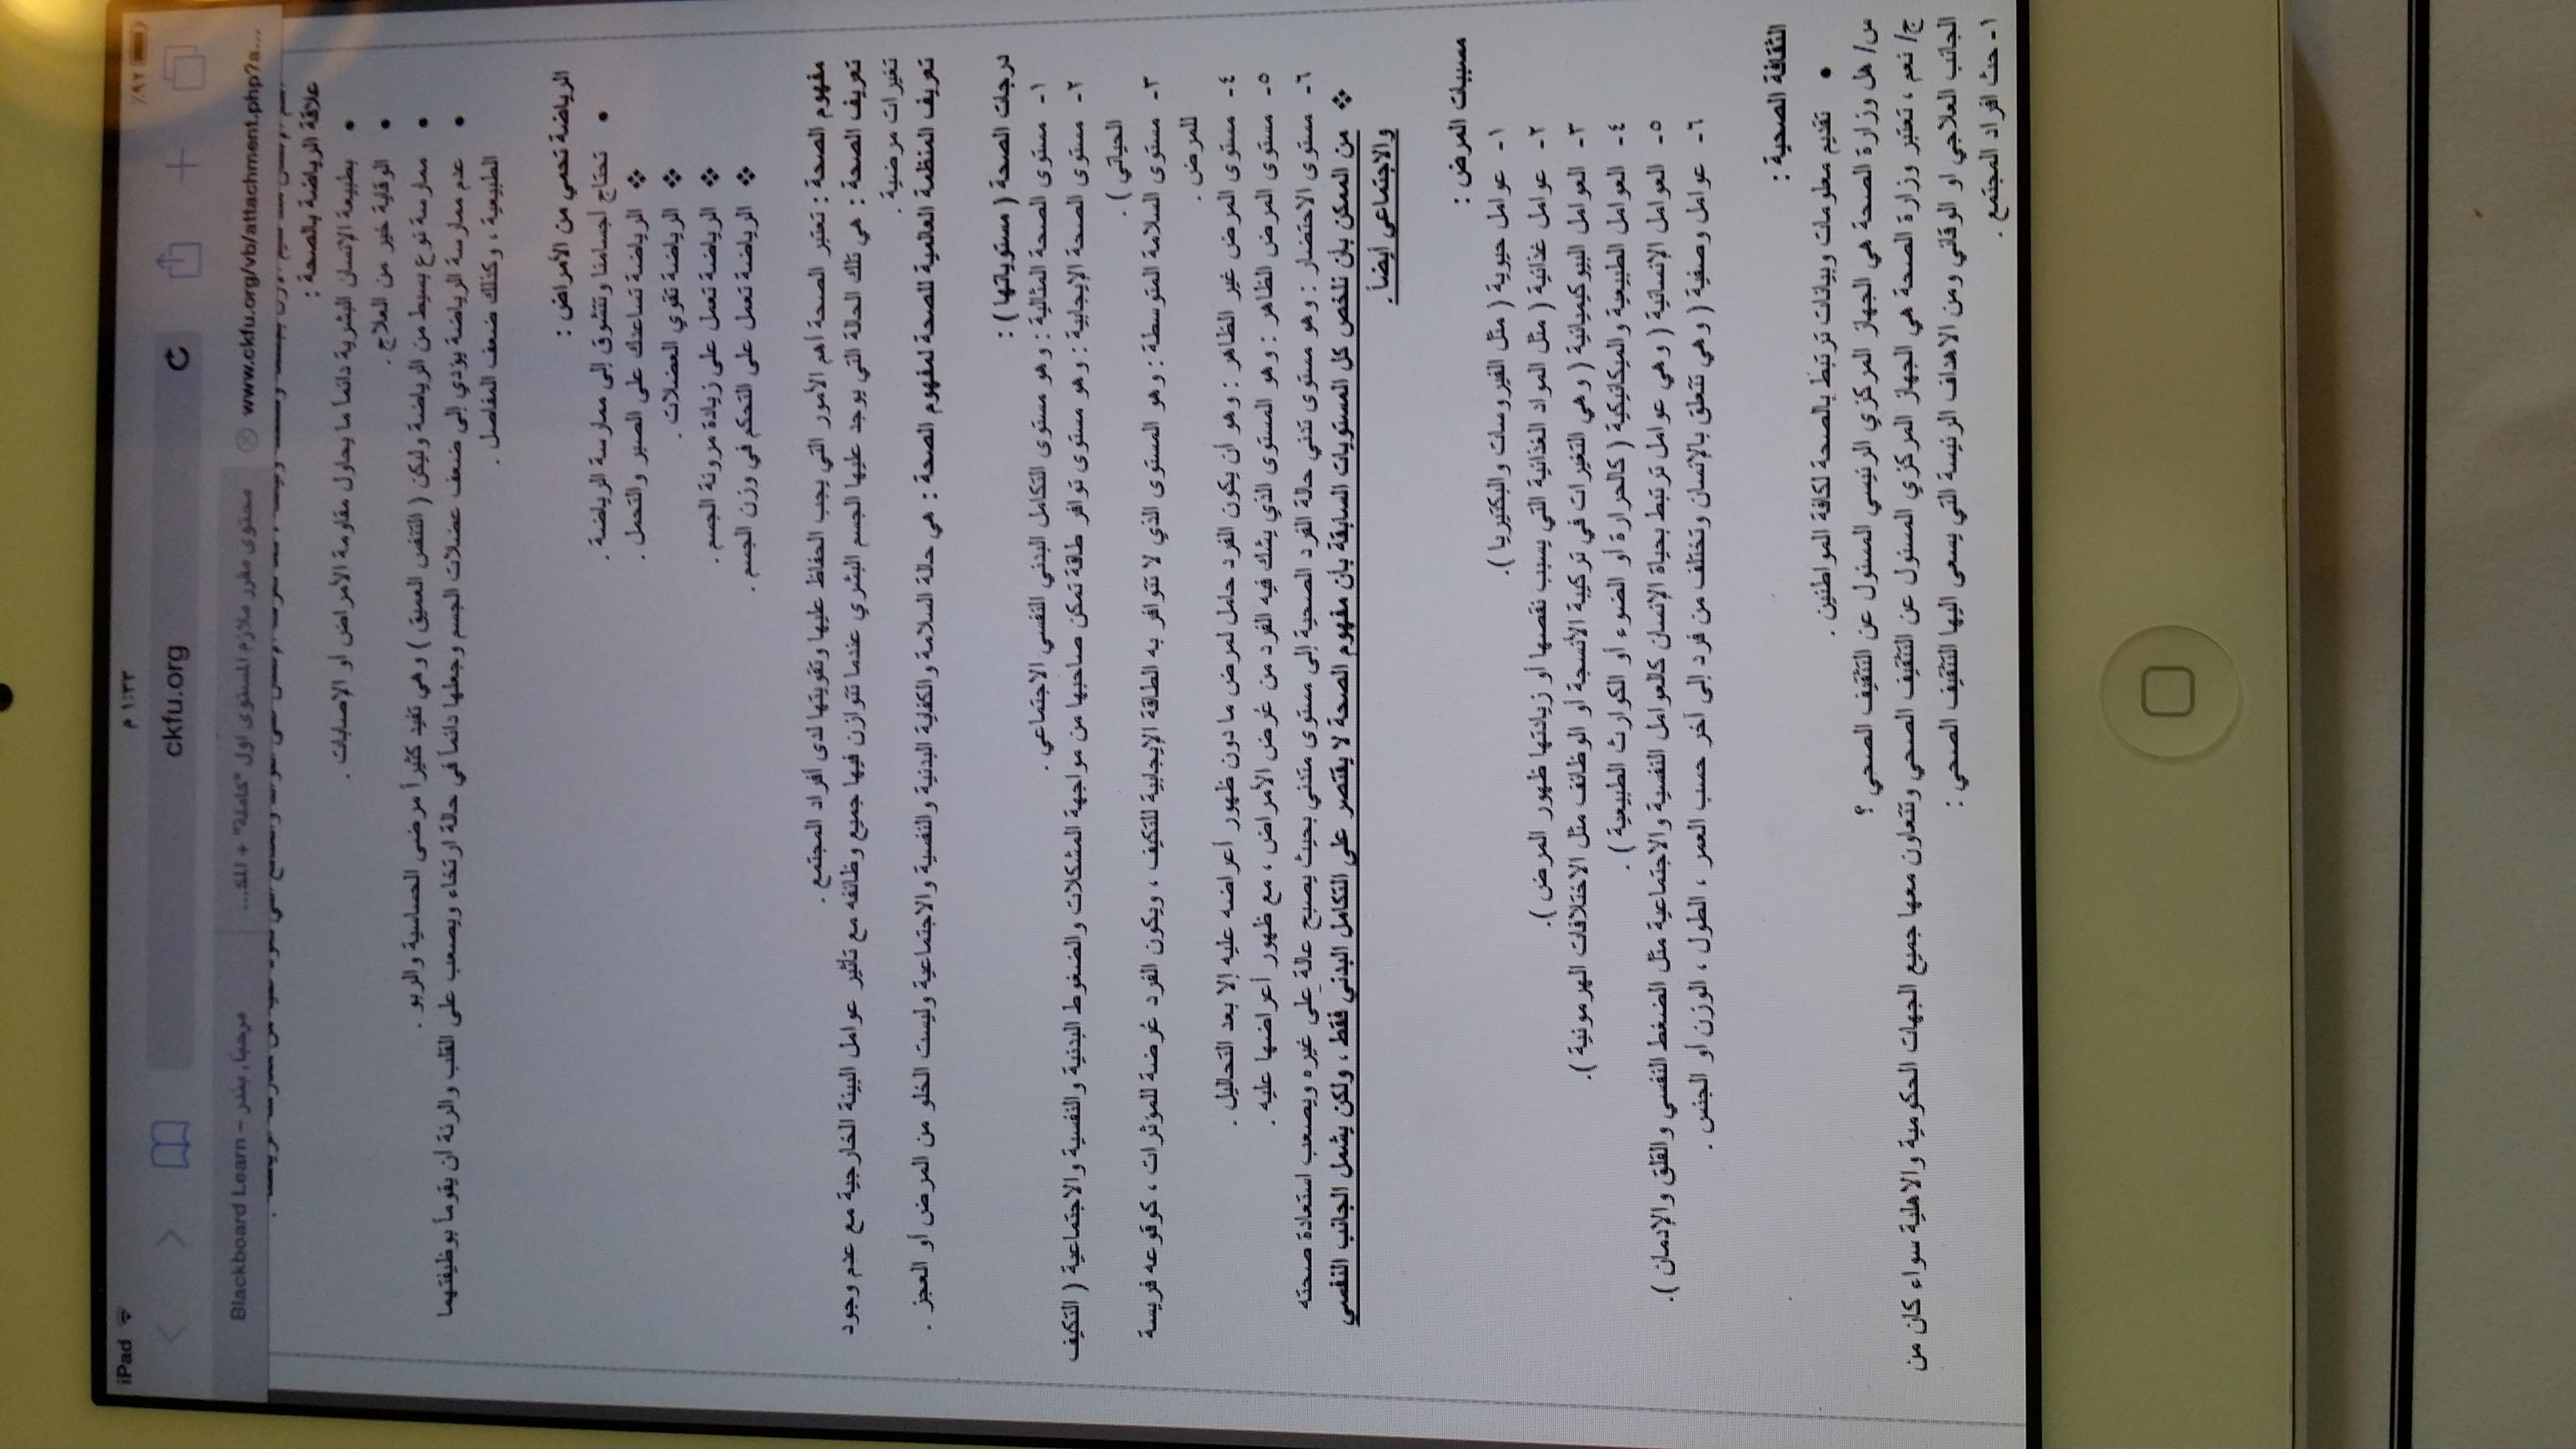 iPad
١:٣٣ م
٪٩٢
ckfu.org
Blackboard Learn – مرحبا, بندر
محتوى مقرر ملازم المستوى اول "كاملة" + المك...
www.ckfu.org/vb/attachment.php?a...
علاقة الرياضة بالصحة :
• بطبيعة الإنسان البشرية دائما ما يحاول مقاومة الأمراض أو الإصابات .
• الوقاية خير من العلاج .
• ممارسة نوع بسيط من الرياضة وليكن ( التنفس العميق ) وهي تفيد كثيراً مرضى الحساسية والربو .
• عدم ممارسة الرياضة يؤدي إلى ضعف عضلات الجسم وجعلها دائماً في حالة ارتخاء ويصعب على القلب والرئة ان يقوما بوظيفتهما
الطبيعية ، وكذلك ضعف المفاصل .
الرياضة تحمي من الأمراض :
• تحتاج أجسامنا وتتشوق إلى ممارسة الرياضة .
❖ الرياضة تساعدك على الصبر والتحمل .
❖ الرياضة تقوي العضلات .
❖ الرياضة تعمل على زيادة مرونة الجسم .
❖ الرياضة تعمل على التحكم في وزن الجسم .
مفهوم الصحة : تعتبر الصحة أهم الأمور التي يجب الحفاظ عليها وتقويتها لدى أفراد المجتمع .
تعريف الصحة : هي تلك الحالة التي يوجد عليها الجسم البشري عندما تتوازن فيها جميع وظائفه مع تأثير عوامل البيئة الخارجية مع عدم وجود
تغيرات مرضية .
تعريف المنظمة العالمية للصحة لمفهوم الصحة : هي حالة السلامة والكفاية البدنية والنفسية والاجتماعية وليست الخلو من المرض أو العجز .
درجات الصحة ( مستوياتها ) :
١- مستوى الصحة المثالية : وهو مستوى التكامل البدني النفسي الاجتماعي .
٢- مستوى الصحة الإيجابية : وهو مستوى توافر طاقة تمكن صاحبها من مواجهة المشكلات والضغوط البدنية والنفسية والاجتماعية ( التكيف
الحياتي ) .
٣- مستوى السلامة المتوسطة : وهو المستوى الذي لا تتوافر به الطاقة الإيجابية للتكيف ، ويكون الفرد عرضة للمؤثرات ، كوقوعه فريسة
للمرض .
٤- مستوى المرض غير الظاهر : وهو أن يكون الفرد حامل لمرض ما دون ظهور أعراضه عليه إلا بعد التحاليل .
٥- مستوى المرض الظاهر : وهو المستوى الذي يشك فيه الفرد من عرض الأمراض ، مع ظهور أعراضها عليه .
٦- مستوى الاحتضار : وهو مستوى تدني حالة الفرد الصحية إلى مستوى متدني بحيث يصبح عالة على غيره ويصعب استعادة صحته
❖ من الممكن بأن نلخص كل المستويات السابقة بأن مفهوم الصحة لا يقتصر على التكامل البدني فقط ، ولكن يشمل الجانب النفسي
والاجتماعي أيضاً .
مسببات المرض :
١- عوامل حيوية ( مثل الفيروسات والبكتيريا ).
٢- عوامل غذائية ( مثل المواد الغذائية التي يسبب نقصها أو زيادتها ظهور المرض ).
٣- العوامل البيوكيميائية ( وهي التغيرات في تركيبة الأنسجة أو الوظائف مثل الاختلافات الهرمونية ).
٤- العوامل الطبيعية والميكانيكية ( كالحرارة أو الضوء أو الكوارث الطبيعية ) .
٥- العوامل الإنسانية ( وهي عوامل ترتبط بحياة الإنسان كالعوامل النفسية والاجتماعية مثل الضغط النفسي والقلق والإدمان ).
٦- عوامل وصفية ( وهي تتعلق بالإنسان وتختلف من فرد إلى آخر حسب العمر ، الطول ، الوزن أو الجنس .
الثقافة الصحية :
• تقديم معلومات وبيانات ترتبط بالصحة لكافة المواطنين .
س/ هل وزارة الصحة هي الجهاز المركزي الرئيسي المسئول عن التثقيف الصحي ؟
ج/ نعم ، تعتبر وزارة الصحة هي الجهاز المركزي المسئول عن التثقيف الصحي وتتعاون معها جميع الجهات الحكومية والاهلية سواء كان من
الجانب العلاجي او الوقائي ومن الاهداف الرئيسة التي يسعى اليها التثقيف الصحي :
١- حث افراد المجتمع .